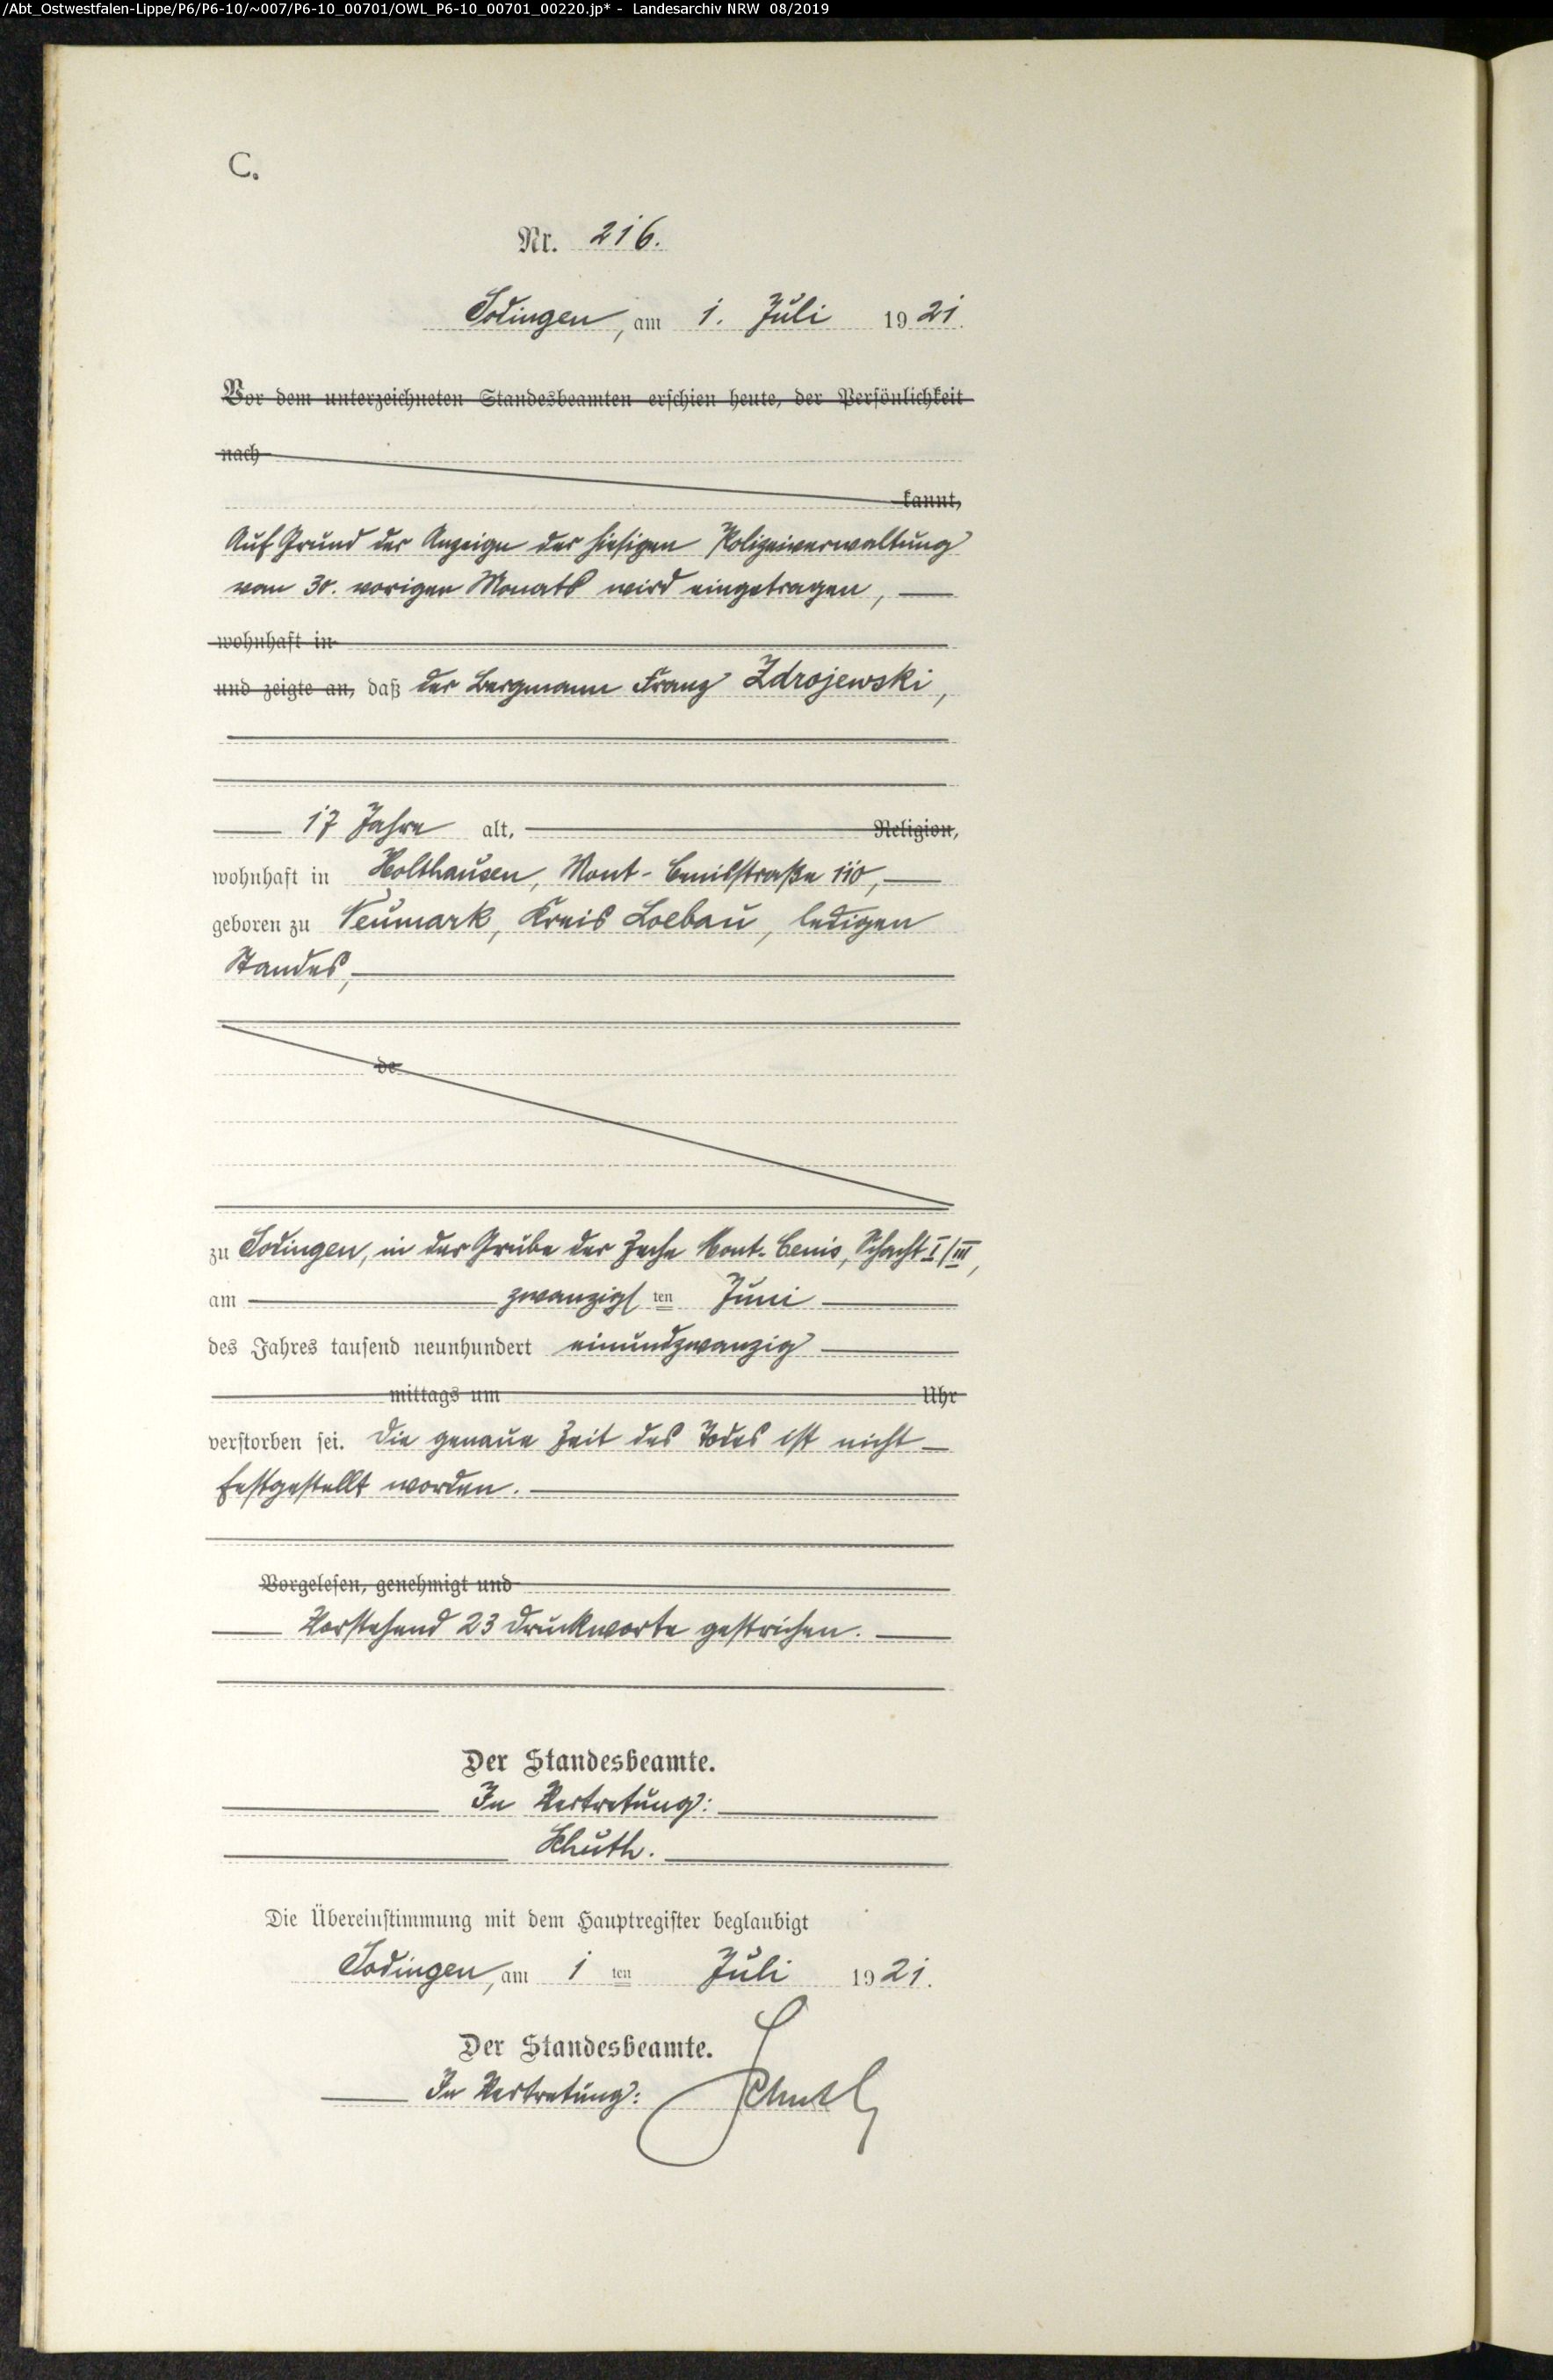 /Abt_Ostwestfalen-Lippe/P6/P6-10/~007/P6-10_00701/OWL_P6-10_00701_00220.jp* - Landesarchiv NRW 08/2019
C.
Nr. 216.
Sodingen, am 1. Juli 1921.
Vor dem unterzeichneten Standesbeamten erschien heute, der Persönlichkeit
nach
kannt,
Auf Grund der Anzeige der hiesigen Polizeiverwaltung
vom 30. vorigen Monats wird eingetragen,
wohnhaft in
und zeigte an, daß der Bergmann Franz Zdrojewski,
17 Jahre alt, Religion,
wohnhaft in Holthausen, Mont-Cenisstraße 110,
geboren zu Neumark, Kreis Loebau, ledigen
Standes,
de
zu Sodingen, in der Grube der Zeche Mont-Cenis, Schacht I/III,
am zwanzigsten Juni
des Jahres tausend neunhundert einundzwanzig
mittags um Uhr
verstorben sei. Die genaue Zeit des Todes ist nicht
festgestellt worden.
Vorgelesen, genehmigt und
Vorstehend 23 Druckworte gestrichen.
Der Standesbeamte.
In Vertretung:
Schuth.
Die Übereinstimmung mit dem Hauptregister beglaubigt
Sodingen, am 1 ten Juli 1921.
Der Standesbeamte.
In Vertretung: Schuth